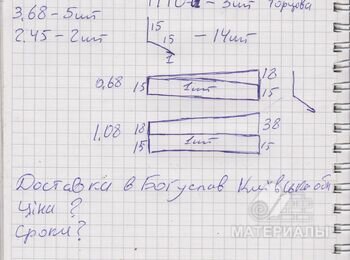 3.68 - 5шт
- 3шт Торцова
2.45 - 2шт
15
15
1
- 14шт
0,68
15
1шт
18
15
1,08
18
15
1шт
38
15
Доставка в Богуслав Київська обл
Ціна ?
Сроки?
МАТЕРИАЛЫ